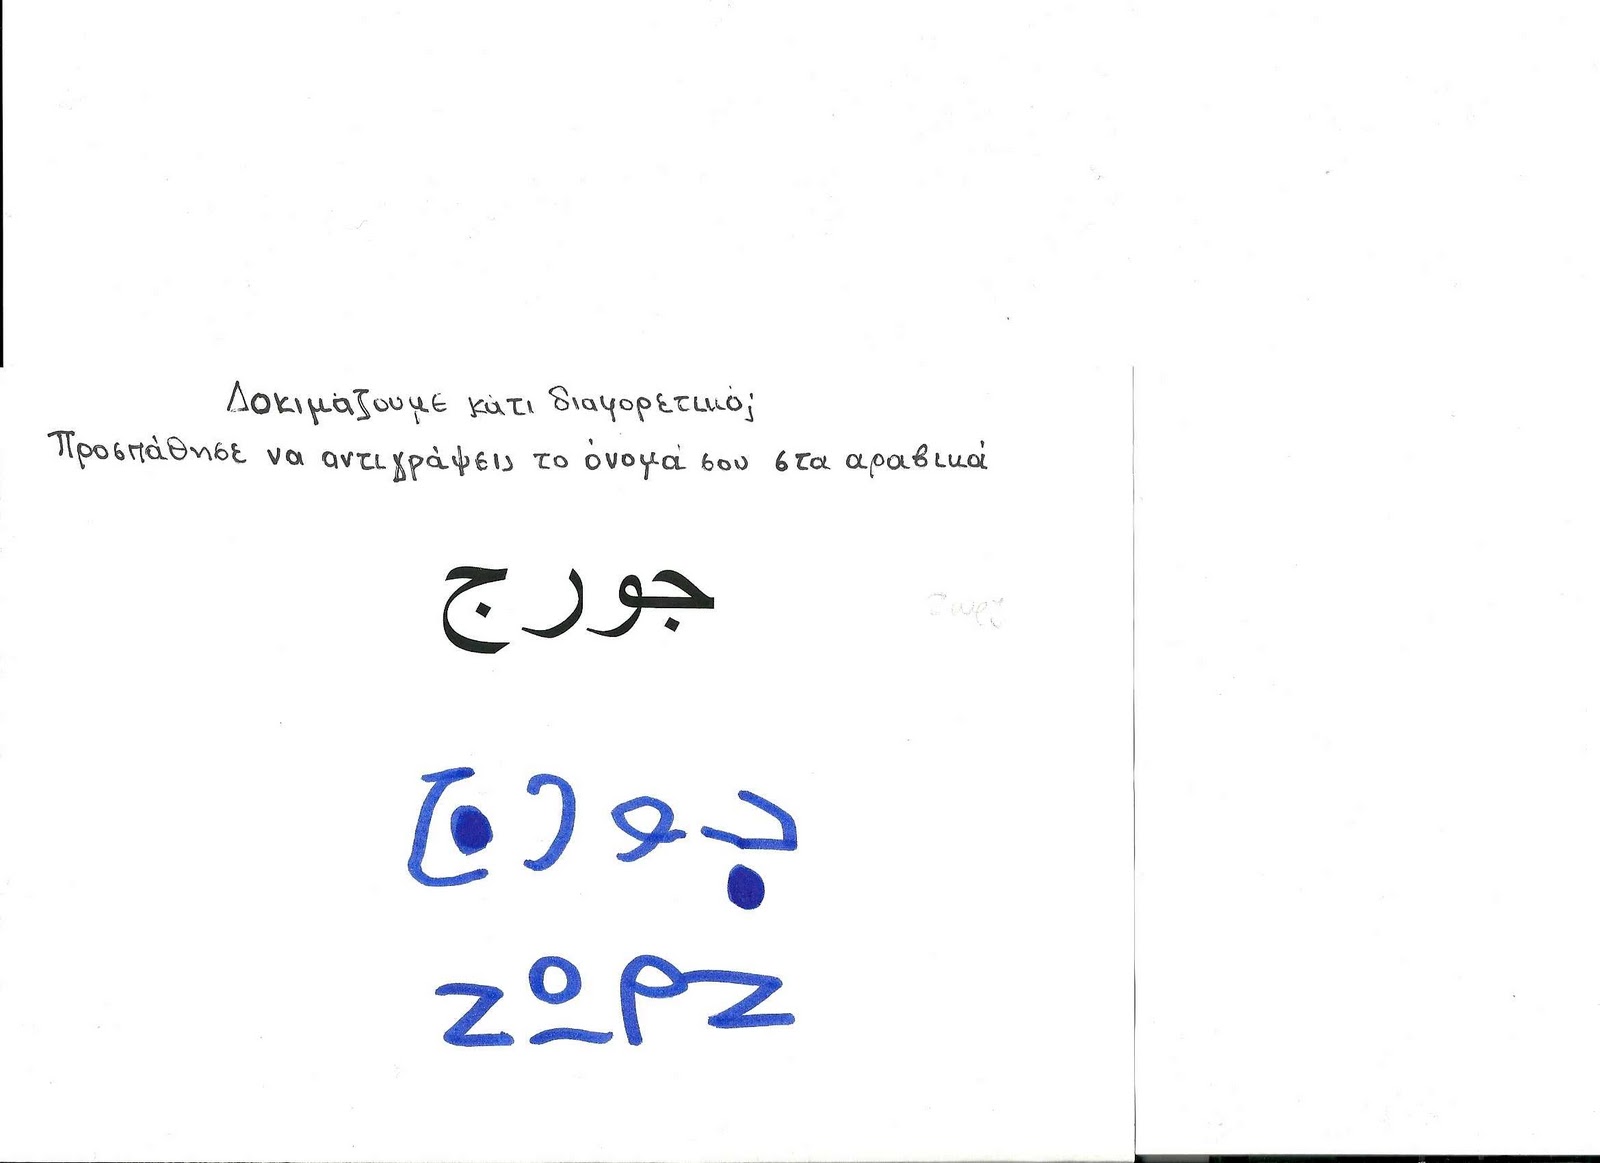 Δοκιμάζουμε κάτι διαφορετικό;
Προσπάθησε να αντιγράψεις το όνομά σου στα αραβικά
جورج
Ζωρζ
جورج
ΖΩΡΖ